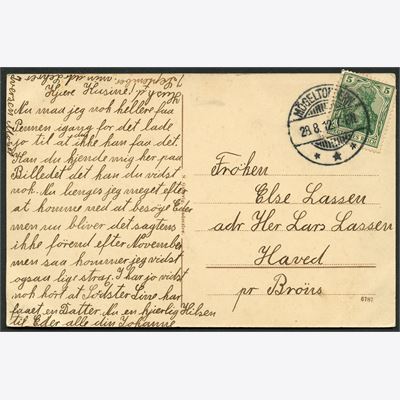 Kjære Kusine!
Nu maa jeg nok hellere faa
Pennen igang for det lade
jo til at ikke kan faa det.
Kan du kjende mig her paa
Billedet det kan du vidst
nok. Nu længes jeg meget efter
at komme ned at besöge Eder
men nu bliver det sagtens
ikke förend efter November
men saa kommer jeg vidst
ogsaa lige straf. I har jo vidst
nok hört at Södster Line har
faaet en Datter. Nu en hjerlig Hilsen
til Eder alle din Johanne
September
MÖGELTONDERN
28.8.12.
5
5
Fröhen
Else Lassen
adr Her Lars Lassen
Haved
pr Bröns
6787